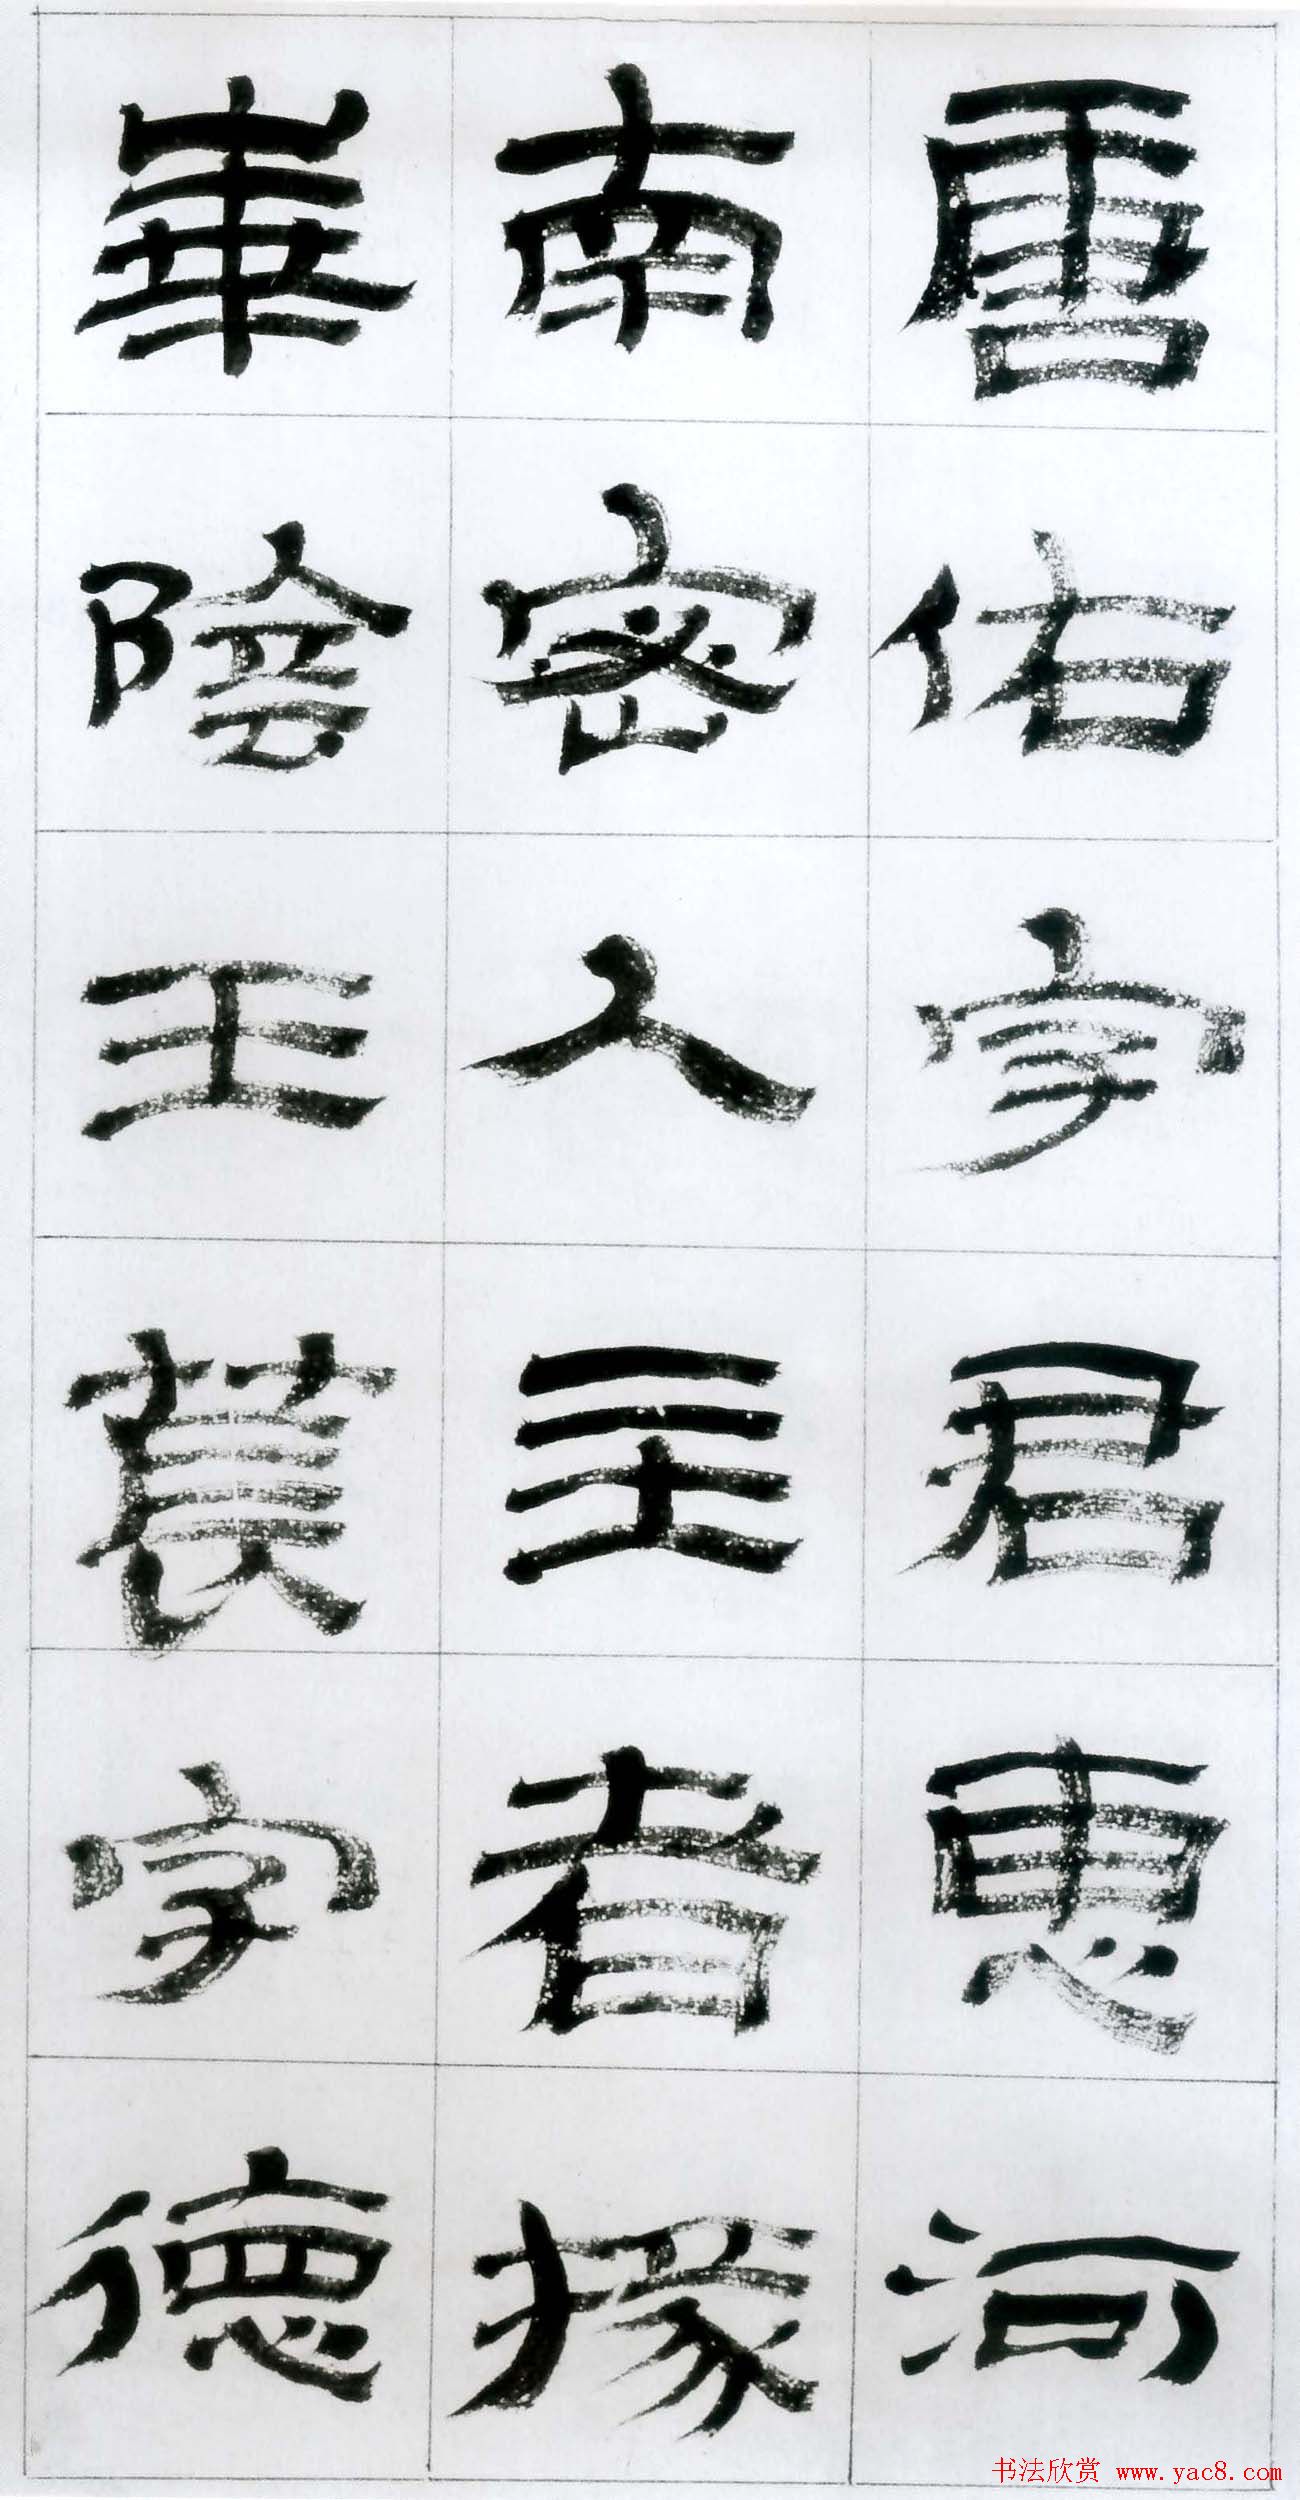 唐佑字君惠河
南密人主者掾
華陰王萇字德
书法欣赏 www.yac8.com